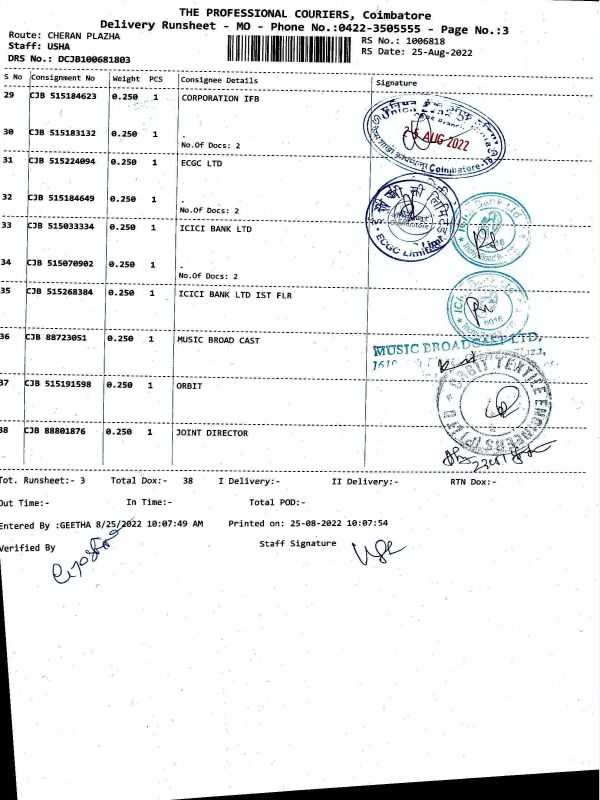 THE PROFESSIONAL COURIERS, Coimbatore
Delivery Runsheet - MO - Phone No.:0422-3505555 - Page No.:3
Route: CHERAN PLAZHA
Staff: USHA
DRS No.: DCJB100681803
RS No.: 1006818
RS Date: 25-Aug-2022
S No Consignment No Weight PCS Consignee Details Signature
29 CJB 515184623 0.250 1 CORPORATION IFB
30 CJB 515183132 0.250 1 .
No.Of Docs: 2
26 AUG 2022
Coimbatore
31 CJB 515224094 0.250 1 ECGC LTD
32 CJB 515184649 0.250 1 .
No.Of Docs: 2
ECGC Limited
33 CJB 515033334 0.250 1 ICICI BANK LTD
34 CJB 515070902 0.250 1 .
No.Of Docs: 2
35 CJB 515268384 0.250 1 ICICI BANK LTD IST FLR
36 CJB 88723051 0.250 1 MUSIC BROAD CAST
MUSIC BROADCAST LTD,
37 CJB 515191598 0.250 1 ORBIT
ORBIT TEXTILE ENGINEERS (P) LTD
38 CJB 88801876 0.250 1 JOINT DIRECTOR
Tot. Runsheet:- 3 Total Dox:- 38 I Delivery:- II Delivery:- RTN Dox:-
Out Time:- In Time:- Total POD:-
Entered By :GEETHA 8/25/2022 10:07:49 AM Printed on: 25-08-2022 10:07:54
Verified By Staff Signature